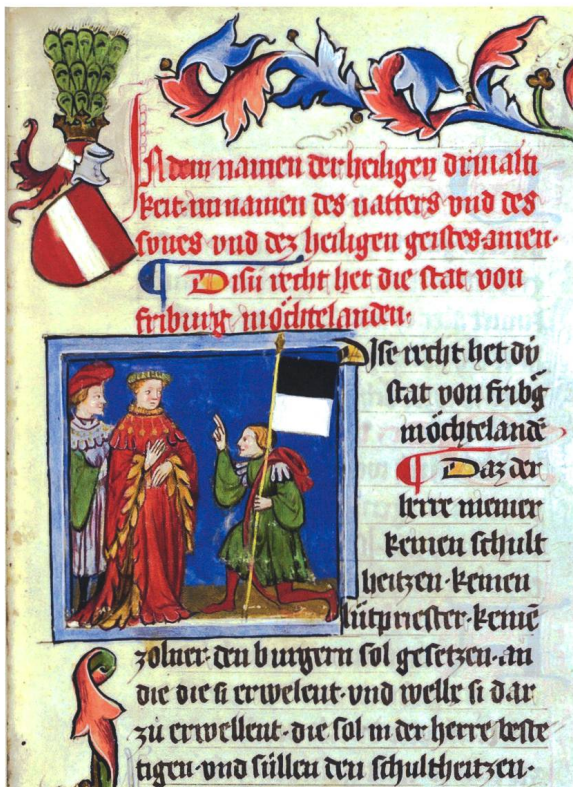 In dem namen der heiligen drivalti
keit· in namen des vatters vnd des
sunes· vnd dez heiligen geistes· amen·
Disú recht het die stat von
friburg möchtelanden·
Dise recht het dú
stat von fribg
möchtelandē
Daz der
herre niemer
keinen schult
heitzen· keinen
lútpriester· keinē
zolner· den burgern sol gesetzen· an
die die si erwelent· vnd welle si dar
zů erwellent· die sol in der herre beste
tigen· vnd súllen den schultheitzen·